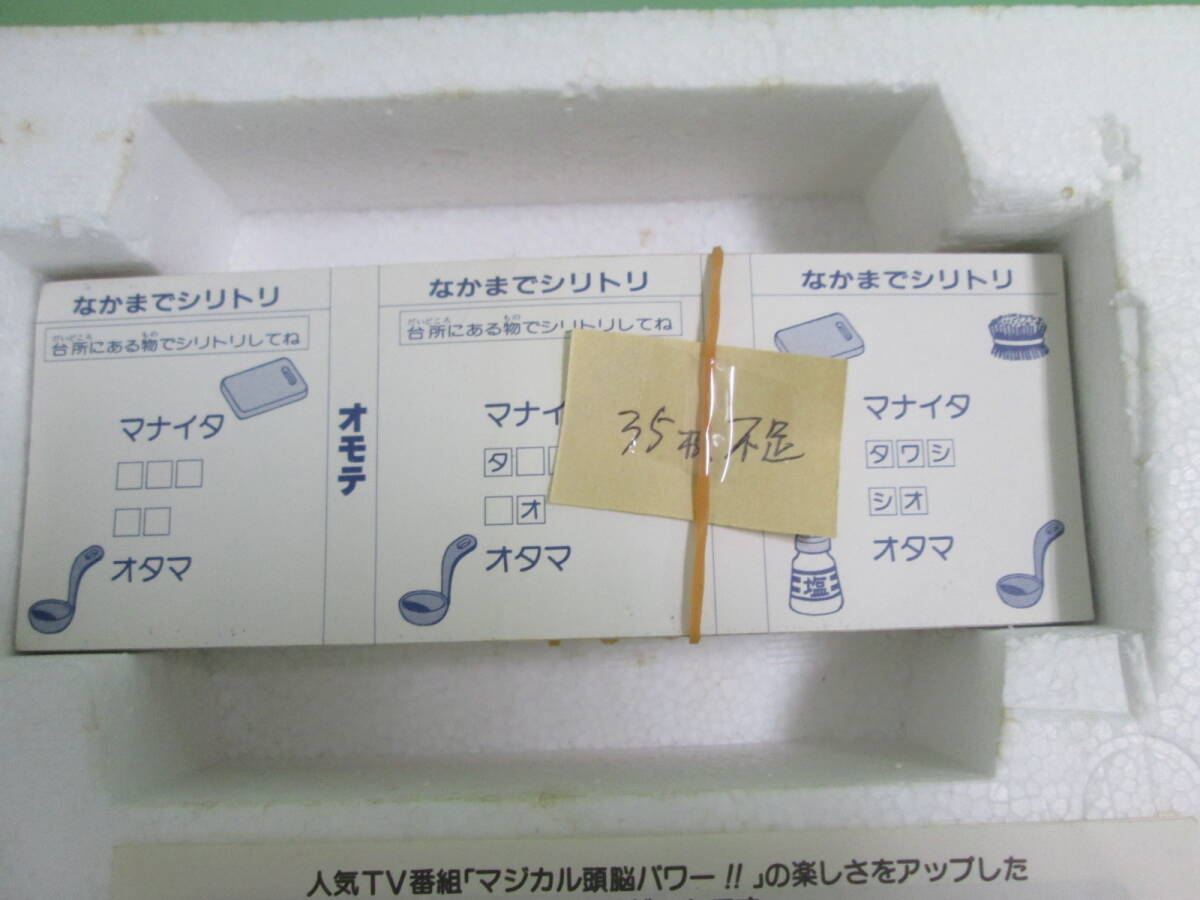 なかまでシリトリ
だいどころ もの
台所にある物でシリトリしてね
マナイタ
オタマ
オモテ
なかまでシリトリ
だいどころ もの
台所にある物でシリトリしてね
マナイ
タ
オ
オタマ
35枚不足
なかまでシリトリ
マナイタ
タワシ
シオ
オタマ
塩
人気TV番組「マジカル頭脳パワー!!」の楽しさをアップした